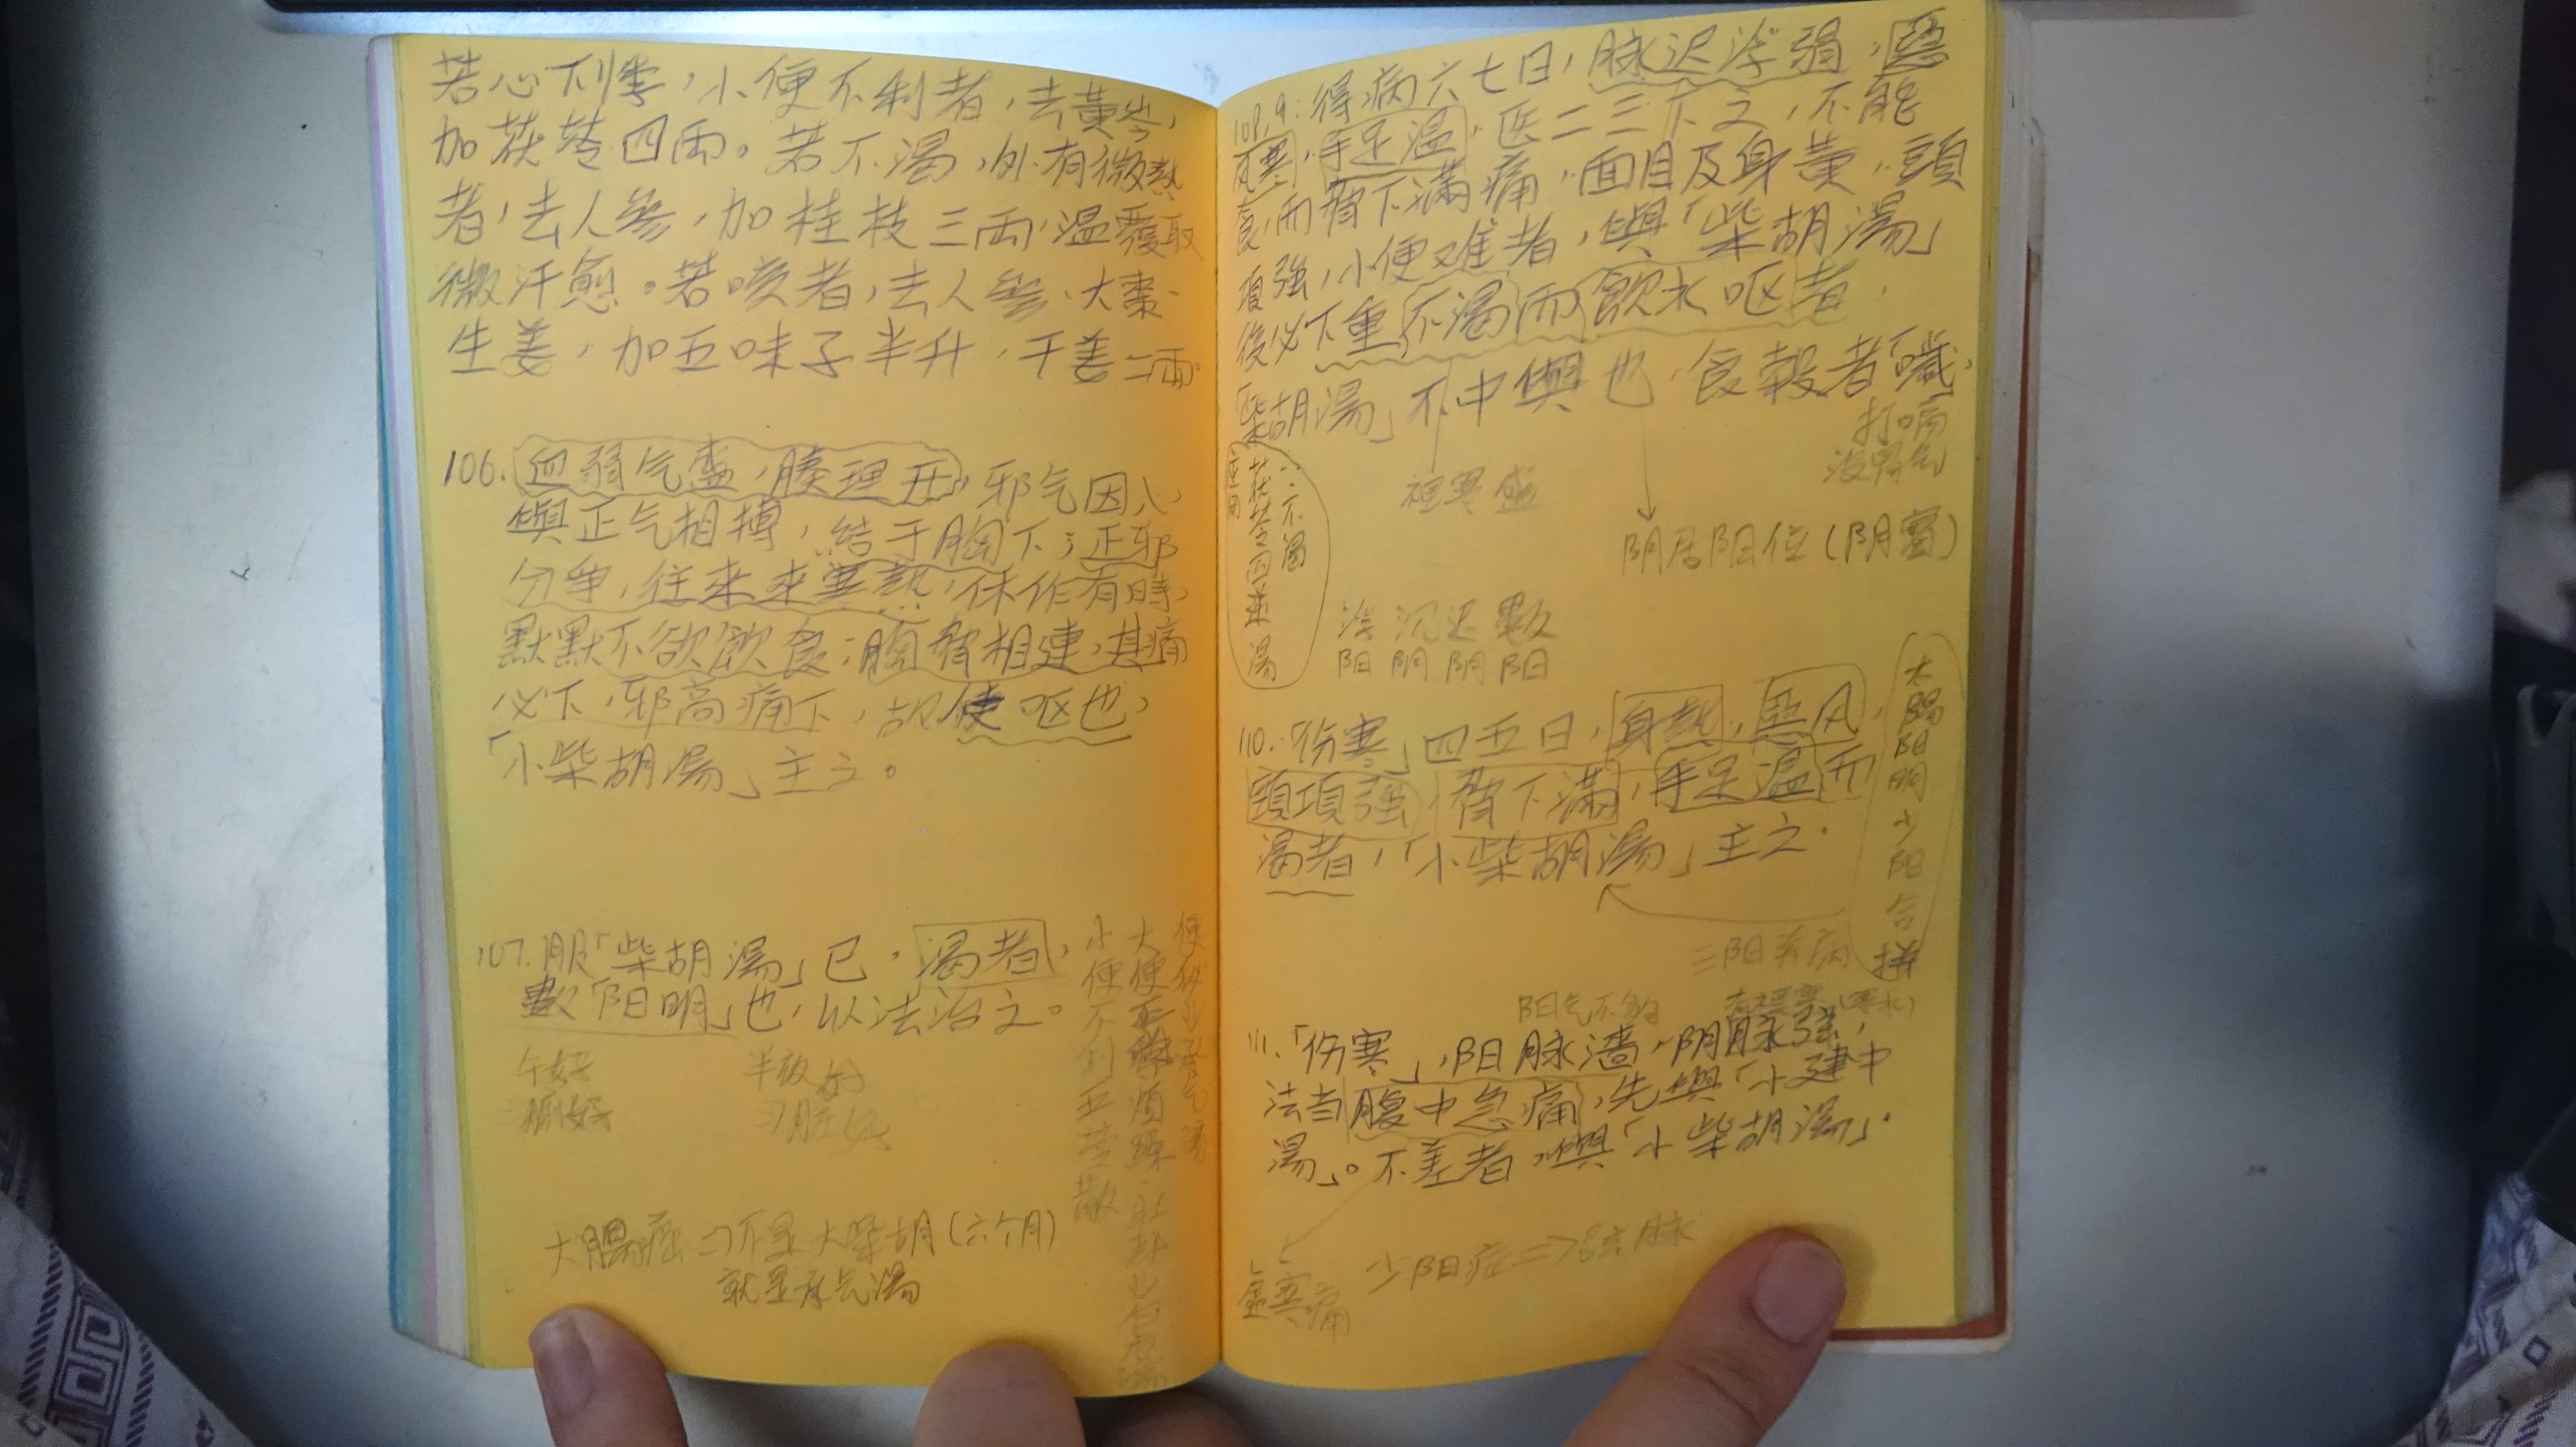 若心下悸，小便不利者，去黄芩，
加茯苓四両。若不渴，外有微熱
者，去人參，加桂枝三両，温覆取
微汗愈。若咳者，去人參、大棗、
生姜，加五味子半升，干姜二両。
106. 血弱气盡，腠理开，邪气因入，
與正气相搏，結于胸下；正邪
分争，往来来寒熱，休作有時，
默默不欲飲食；胸脅相連，其痛
必下，邪高痛下，故使呕也，
「小柴胡湯」主之。
107. 服「柴胡湯」已，渴者，
數「阳明」也，以法治之。
大腸癌 不是大柴胡(六个月)
就是承气湯
便秘 承气湯
小便不利 五苓散
108,9: 得病六七日，脉迟浮弱，惡
风寒，手足温，医二三下之，不能
食，而脅下滿痛，面目及身黄，頭
項強，小便难者，與「柴胡湯」
後必下重，不渴而飲水呕者，
「柴胡湯」不中與也，食穀者「噦」
打嗝
裡寒盛
阴居阳位(阴實)
∵不渴
茯苓四逆湯
浮 沉 迟 數
阳 阴 阴 阳
110. 「伤寒」四五日，身熱，惡风，
頸項強，脅下滿，手足温而
渴者，「小柴胡湯」主之。
太陽阳明少阳合拼
三阳并病
阳气不夠 有裡寒(寒水)
111. 「伤寒」，阳脉濇，阴脉弦，
法当腹中急痛，先與「小建中
湯」。不差者，與「小柴胡湯」。
虛寒痛
少阳症=>弦脉